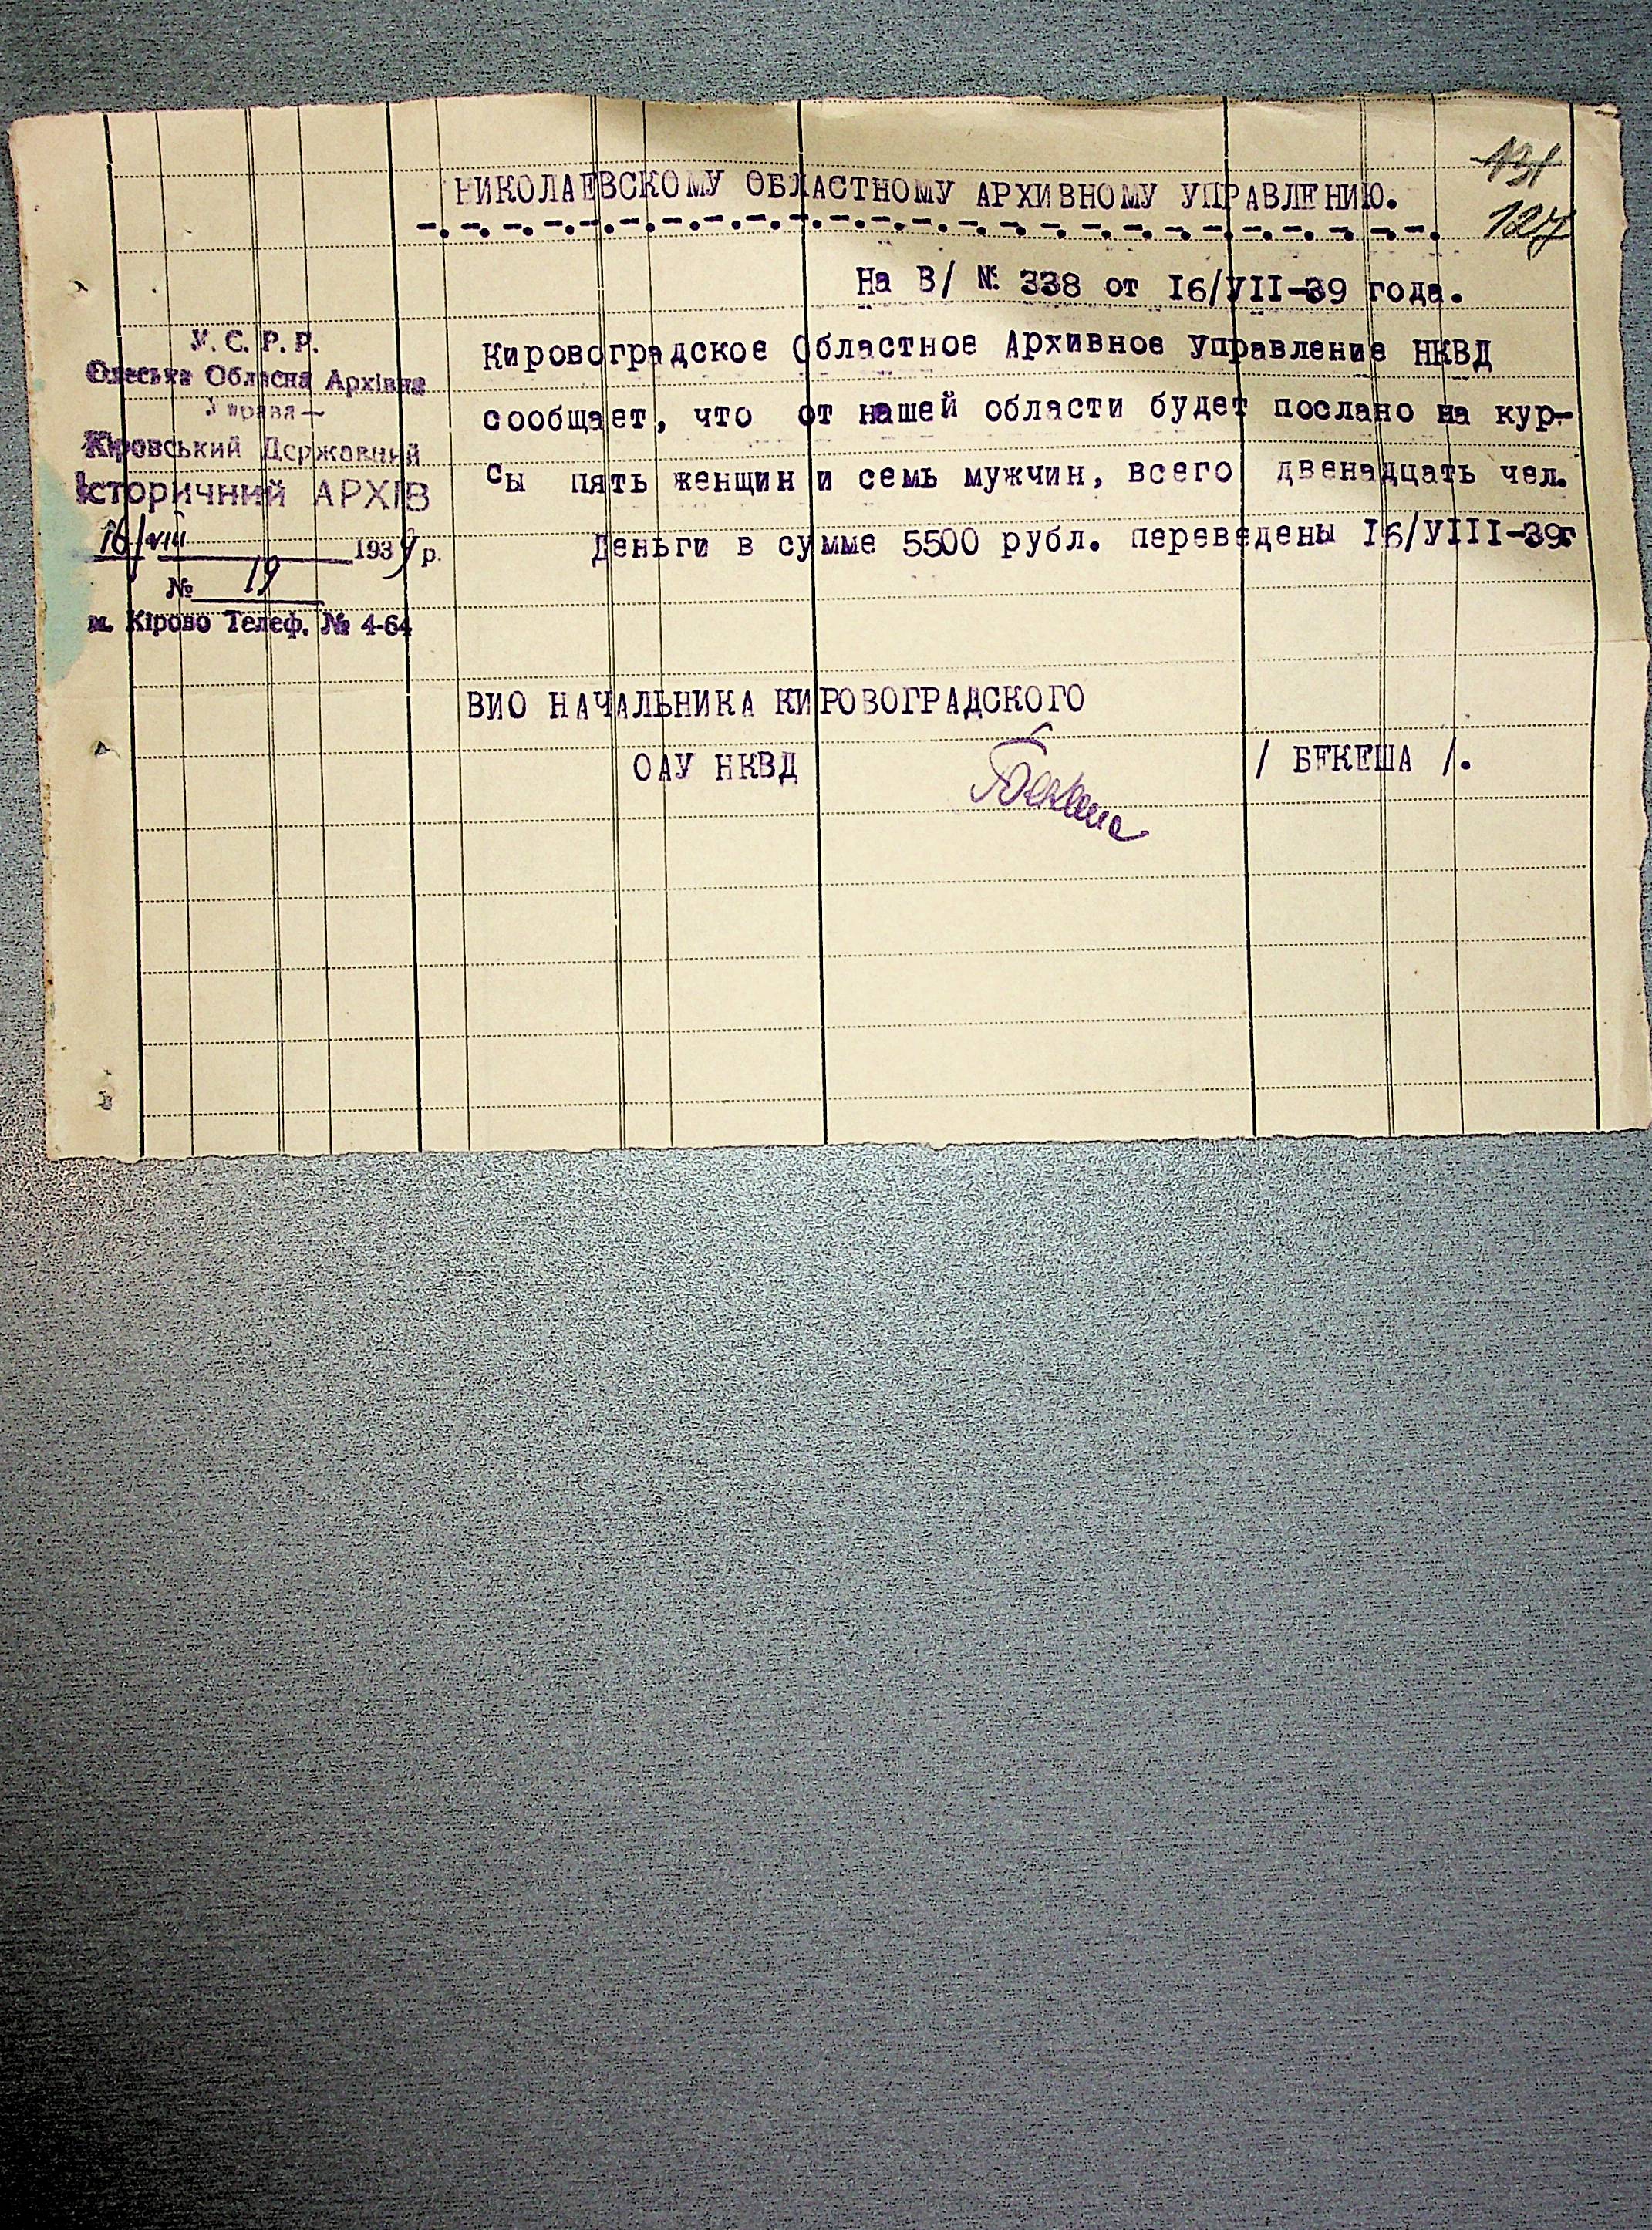 131
127
НИКОЛАЕВСКОМУ ОБЛАСТНОМУ АРХИВНОМУ УПРАВЛЕНИЮ.
На В/ № 338 от I6/УII-39 года.
У. С. Р. Р.
Одеська Обласна Архівна
Управа—
Кіровський Державний
Історичний АРХІВ
16/VIII 1939 р.
№ 19
м. Кірово Телеф. № 4-64
Кировоградское Областное Архивное управление НКВД
сообщает, что от нашей области будет послано на кур-
сы пять женщин и семь мужчин, всего двенадцать чел.
Деньги в сумме 5500 рубл. переведены I6/УIII-39г
ВИО НАЧАЛЬНИКА КИРОВОГРАДСКОГО
ОАУ НКВД Бекеша / БЕКЕША /.